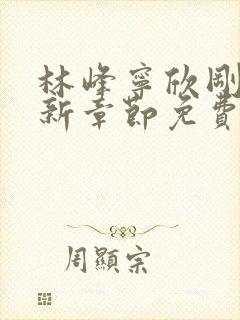 林峰寧欣剛
新章節免費
周顯宗